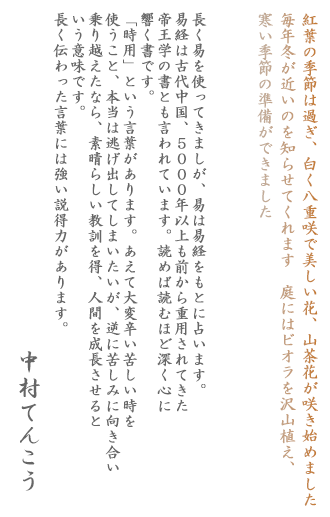 紅葉の季節は過ぎ、白く八重咲で美しい花、山茶花が咲き始めました
毎年冬が近いのを知らせてくれます　庭にはビオラを沢山植え、
寒い季節の準備ができました
長く易を使ってきましが、易は易経をもとに占います。
易経は古代中国、５０００年以上も前から重用されてきた
帝王学の書とも言われています。読めば読むほど深く心に
響く書です。
「時用」という言葉があります。あえて大変辛い苦しい時を
使うこと、本当は逃げ出してしまいたいが、逆に苦しみに向き合い
乗り越えたなら、素晴らしい教訓を得、人間を成長させると
いう意味です。
長く伝わった言葉には強い説得力があります。
中村てんこう